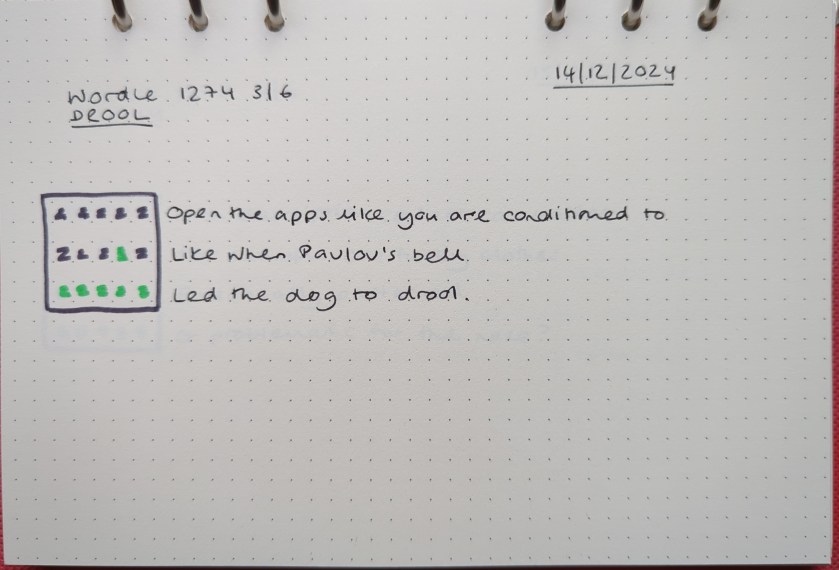 Wordle 1274 3/6
DROOL
14/12/2024
Open the apps like you are conditioned to
Like when Pavlov's bell
Led the dog to drool.